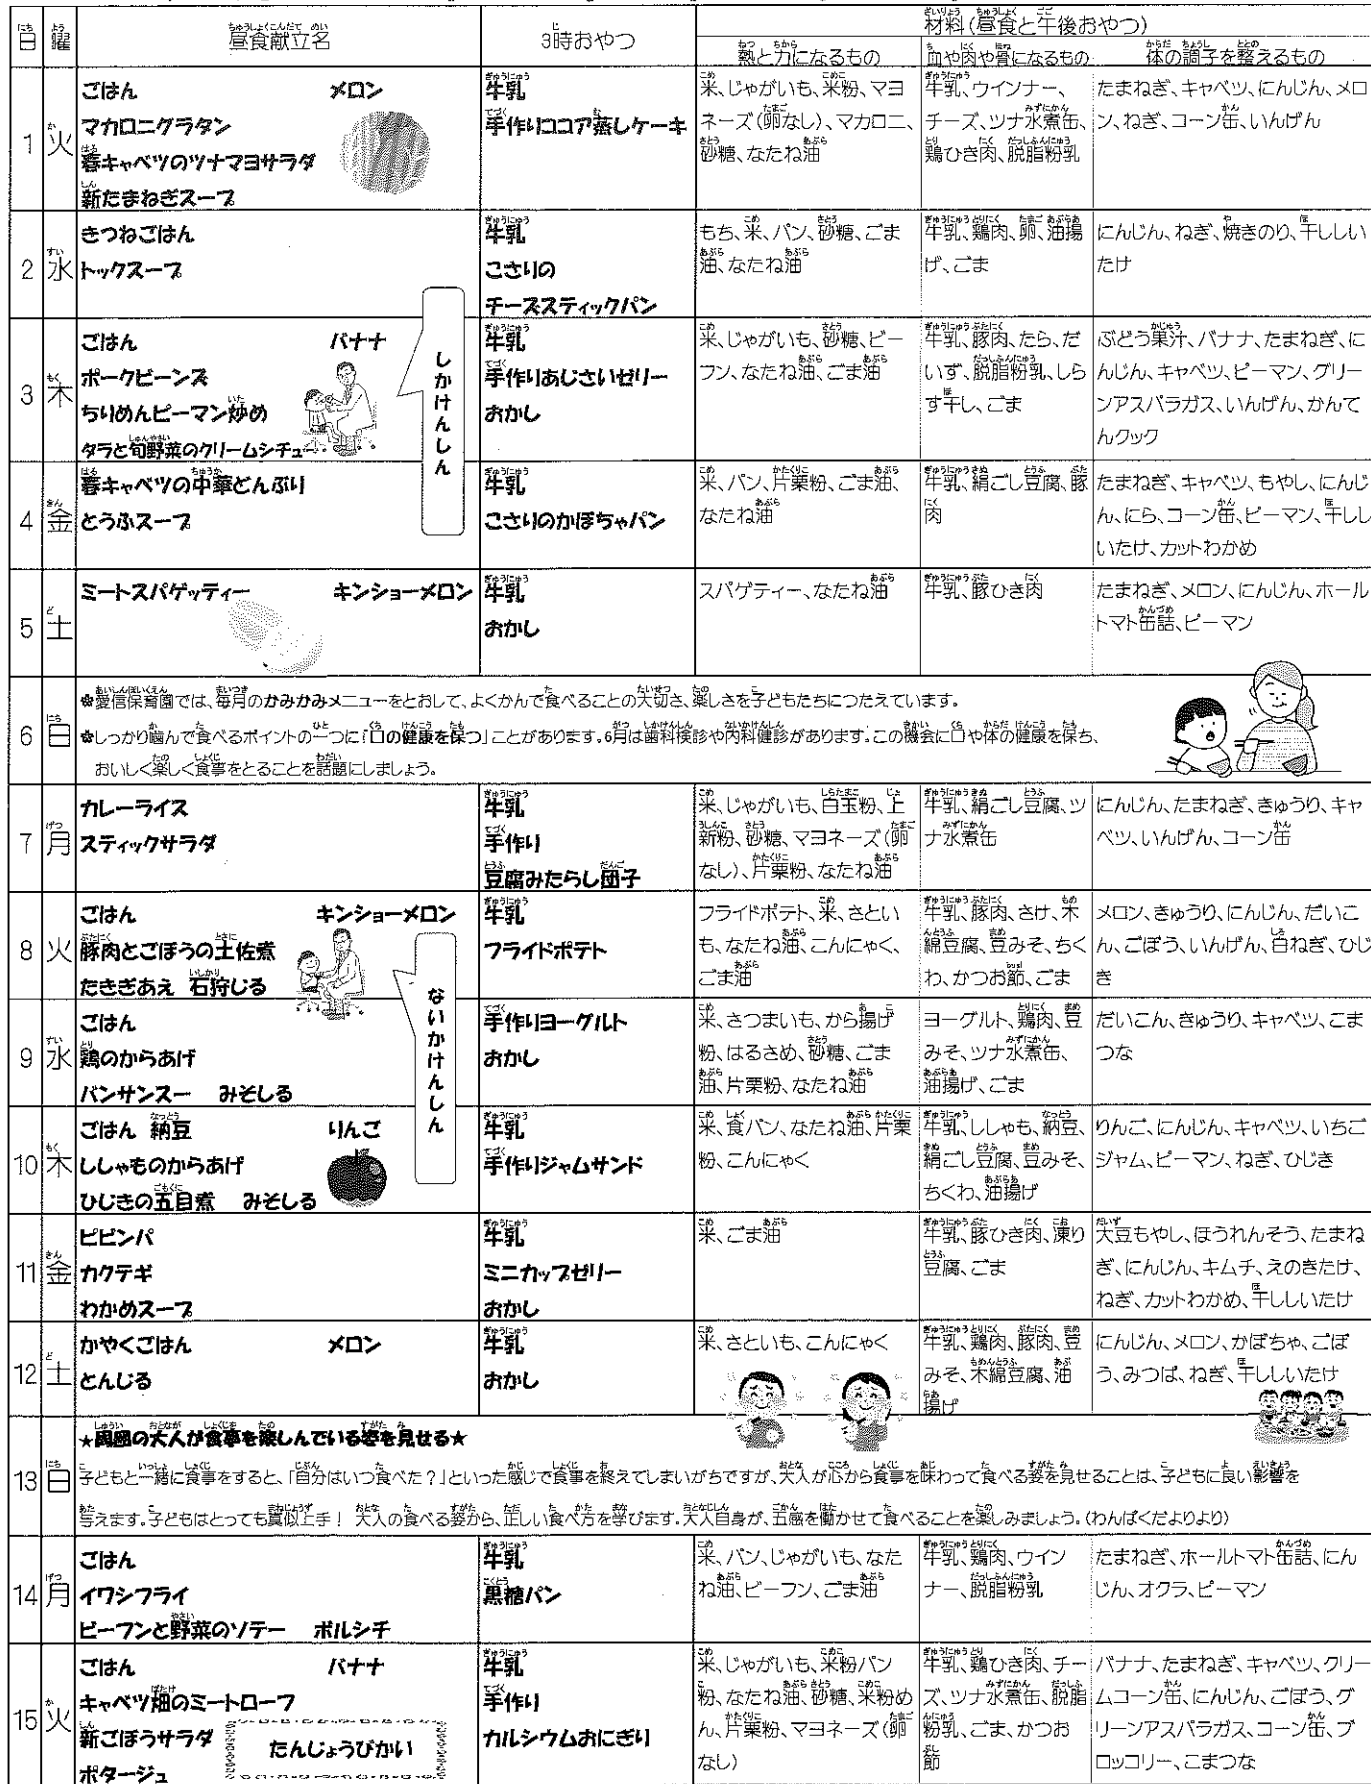 日 曜 昼食献立名 3時おやつ 材料(昼食と午後おやつ)
熱と力になるもの 血や肉や骨になるもの 体の調子を整えるもの
1 火
ごはん メロン
マカロニグラタン
春キャベツのツナマヨサラダ
新たまねぎスープ
牛乳
手作りココア蒸しケーキ
米、じゃがいも、米粉、マヨ
ネーズ(卵なし)、マカロニ、
砂糖、なたね油
牛乳、ウインナー、
チーズ、ツナ水煮缶、
鶏ひき肉、脱脂粉乳
たまねぎ、キャベツ、にんじん、メロ
ン、ねぎ、コーン缶、いんげん
2 水
きつねごはん
トックスープ
牛乳
こさりの
チーズスティックパン
もち、米、パン、砂糖、ごま
油、なたね油
牛乳、鶏肉、卵、油揚
げ、ごま
にんじん、ねぎ、焼きのり、干ししい
たけ
3 木
ごはん バナナ
ポークビーンズ
ちりめんピーマン炒め
タラと旬野菜のクリームシチュー
しかけんしん
牛乳
手作りあじさいゼリー
おかし
米、じゃがいも、砂糖、ビー
フン、なたね油、ごま油
牛乳、豚肉、たら、だ
いず、脱脂粉乳、しら
す干し、ごま
ぶどう果汁、バナナ、たまねぎ、に
んじん、キャベツ、ピーマン、グリー
ンアスパラガス、いんげん、かんて
んクック
4 金
春キャベツの中華どんぶり
とうふスープ
牛乳
こさりのかぼちゃパン
米、パン、片栗粉、ごま油、
なたね油
牛乳、絹ごし豆腐、豚
肉
たまねぎ、キャベツ、もやし、にんじ
ん、にら、コーン缶、ピーマン、干しし
いたけ、カットわかめ
5 土
ミートスパゲッティー キンショーメロン
牛乳
おかし
スパゲティー、なたね油
牛乳、豚ひき肉
たまねぎ、メロン、にんじん、ホール
トマト缶詰、ピーマン
6 日
✿愛信保育園では、毎月のかみかみメニューをとおして、よくかんで食べることの大切さ、楽しさを子どもたちにつたえています。
✿しっかり噛んで食べるポイントの一つに「口の健康を保つ」ことがあります。6月は歯科検診や内科健診があります。この機会に口や体の健康を保ち、
おいしく楽しく食事をとることを話題にしましょう。
7 月
カレーライス
スティックサラダ
牛乳
手作り
豆腐みたらし団子
米、じゃがいも、白玉粉、上
新粉、砂糖、マヨネーズ(卵
なし)、片栗粉、なたね油
牛乳、絹ごし豆腐、ツ
ナ水煮缶
にんじん、たまねぎ、きゅうり、キャ
ベツ、いんげん、コーン缶
8 火
ごはん キンショーメロン
豚肉とごぼうの土佐煮
たきぎあえ 石狩じる
ないかけんしん
牛乳
フライドポテト
フライドポテト、米、さとい
も、なたね油、こんにゃく、
ごま油
牛乳、豚肉、さけ、木
綿豆腐、豆みそ、ちく
わ、かつお節、ごま
メロン、きゅうり、にんじん、だいこ
ん、ごぼう、いんげん、白ねぎ、ひじ
き
9 水
ごはん
鶏のからあげ
バンサンスー みそしる
手作りヨーグルト
おかし
米、さつまいも、から揚げ
粉、はるさめ、砂糖、ごま
油、片栗粉、なたね油
ヨーグルト、鶏肉、豆
みそ、ツナ水煮缶、
油揚げ、ごま
だいこん、きゅうり、キャベツ、こま
つな
10 木
ごはん 納豆 りんご
ししゃものからあげ
ひじきの五目煮 みそしる
牛乳
手作りジャムサンド
米、食パン、なたね油、片栗
粉、こんにゃく
牛乳、ししゃも、納豆、
絹ごし豆腐、豆みそ、
ちくわ、油揚げ
りんご、にんじん、キャベツ、いちご
ジャム、ピーマン、ねぎ、ひじき
11 金
ビビンパ
カクテギ
わかめスープ
牛乳
ミニカップゼリー
おかし
米、ごま油
牛乳、豚ひき肉、凍り
豆腐、ごま
大豆もやし、ほうれんそう、たまね
ぎ、にんじん、キムチ、えのきたけ、
ねぎ、カットわかめ、干ししいたけ
12 土
かやくごはん メロン
とんじる
牛乳
おかし
米、さといも、こんにゃく
牛乳、鶏肉、豚肉、豆
みそ、木綿豆腐、油
揚げ
にんじん、メロン、かぼちゃ、ごぼ
う、みつば、ねぎ、干ししいたけ
13 日
★周囲の大人が食事を楽しんでいる姿を見せる★
子どもと一緒に食事をすると、「自分はいつ食べた?」といった感じで食事を終えてしまいがちですが、大人が心から食事を味わって食べる姿を見せることは、子どもに良い影響を
与えます。子どもはとっても真似上手! 大人の食べる姿から、正しい食べ方を学びます。大人自身が、五感を働かせて食べることを楽しみましょう。(わんぱくだよりより)
14 月
ごはん
イワシフライ
ビーフンと野菜のソテー ボルシチ
牛乳
黒糖パン
米、パン、じゃがいも、なた
ね油、ビーフン、ごま油
牛乳、鶏肉、ウイン
ナー、脱脂粉乳
たまねぎ、ホールトマト缶詰、にん
じん、オクラ、ピーマン
15 火
ごはん バナナ
キャベツ畑のミートローフ
新ごぼうサラダ
ポタージュ
たんじょうびかい
牛乳
手作り
カルシウムおにぎり
米、じゃがいも、米粉パン
粉、なたね油、砂糖、米粉め
ん、片栗粉、マヨネーズ(卵
なし)
牛乳、鶏ひき肉、チー
ズ、ツナ水煮缶、脱脂
粉乳、ごま、かつお
節
バナナ、たまねぎ、キャベツ、クリー
ムコーン缶、にんじん、ごぼう、グ
リーンアスパラガス、コーン缶、ブ
ロッコリー、こまつな